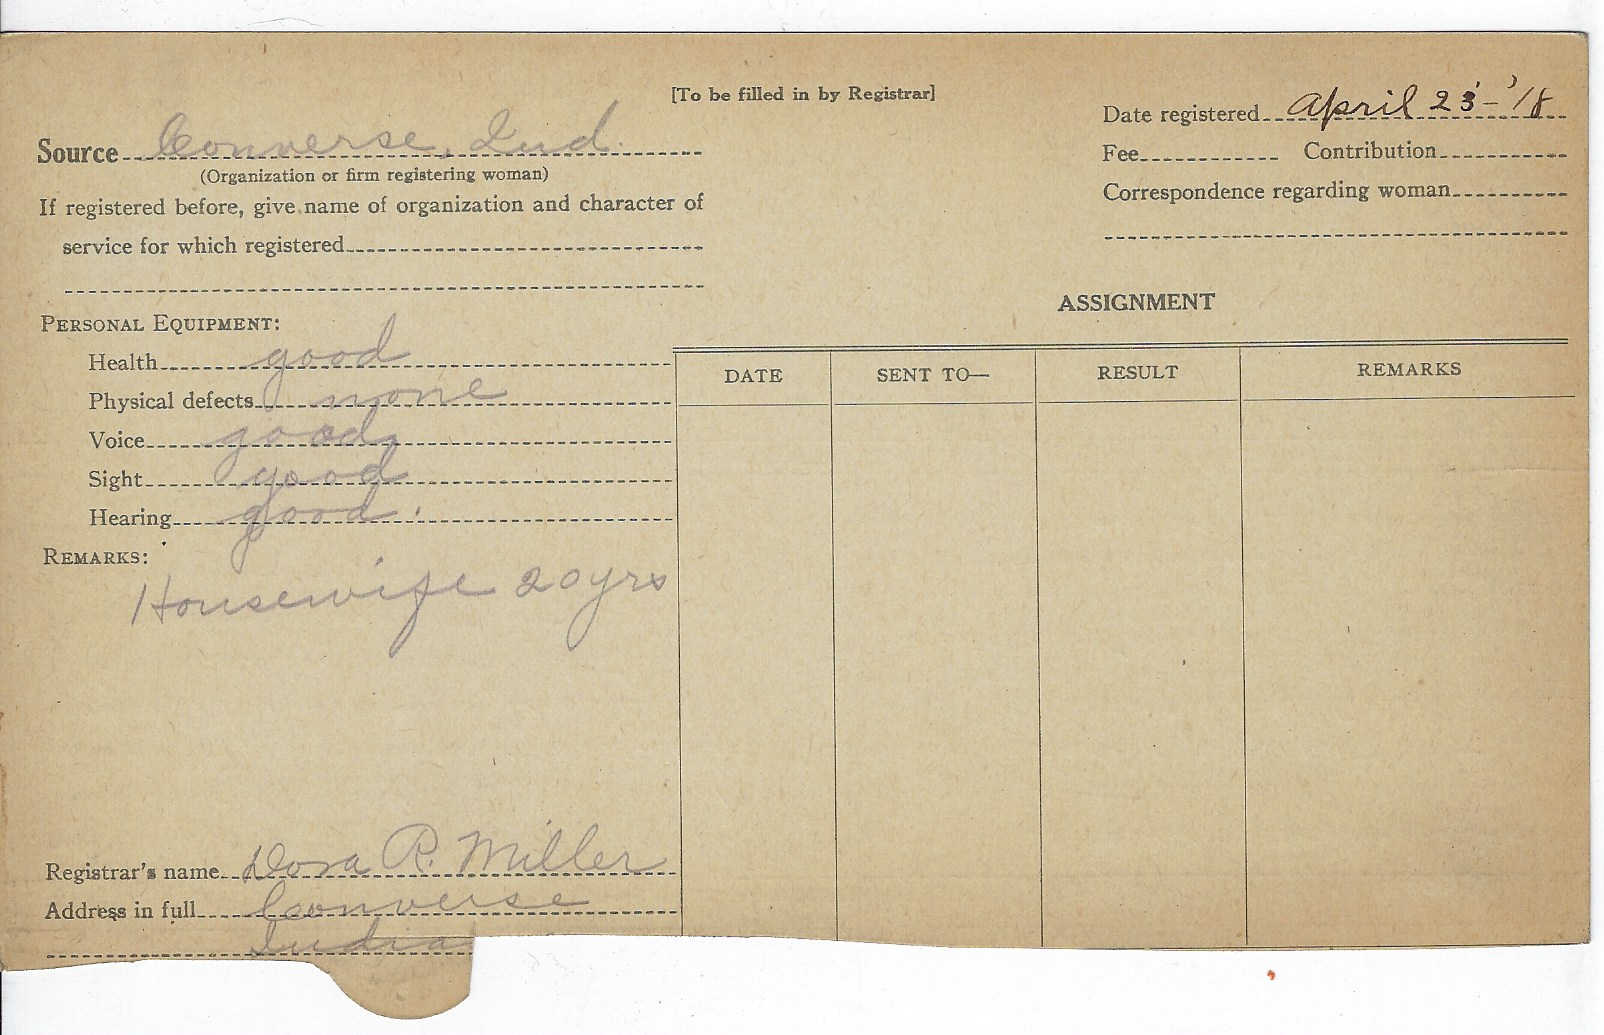 [To be filled in by Registrar]
Source Converse, Ind.
(Organization or firm registering woman)
If registered before, give name of organization and character of
service for which registered
Date registered April 23-'18
Fee Contribution
Correspondence regarding woman
PERSONAL EQUIPMENT:
Health good
Physical defects none
Voice good
Sight good
Hearing good.
REMARKS:
Housewife 20 yrs
Registrar's name Dora R. Miller
Address in full Converse
India
ASSIGNMENT
DATE SENT TO— RESULT REMARKS